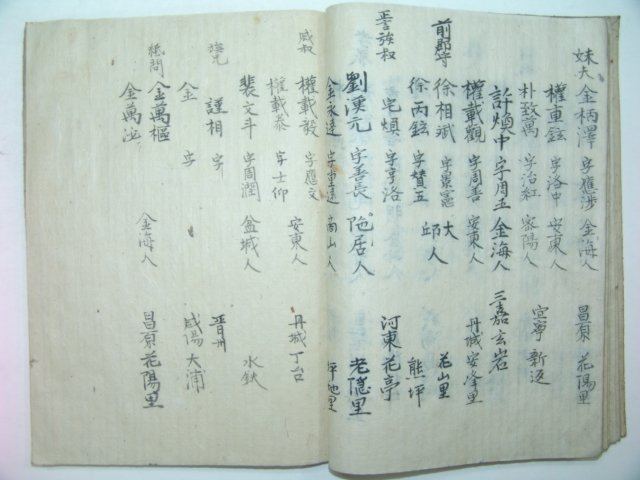 妹夫 金柄澤 字應涉 金海人 昌原 花陽里
權車鉉 字洛中 安東人
朴致萬 字治紅 密陽人 宜寧 新返
許煥中 字周五 金海人 三嘉 玄岩
權載觀 字周善 安東人 丹城 安峰里
前郡守 徐相斌 字景憲 大邱人 花山里
徐丙鉉 字贊五 熊坪
三言族叔 宅煥 字亨洛 河東 花亭
劉漢元 字善長 居人 老隱里
金永達 字重遠 南山人 坪地里
戚叔 權載毅 字應文 安東人 丹城 丁台
權載泰 字士仰
裴文斗 字周潤 盆城人 水鉄
謹相 字 晋州
金 字 咸陽 大浦
金萬樞 金海人 昌原 花陽里
金萬